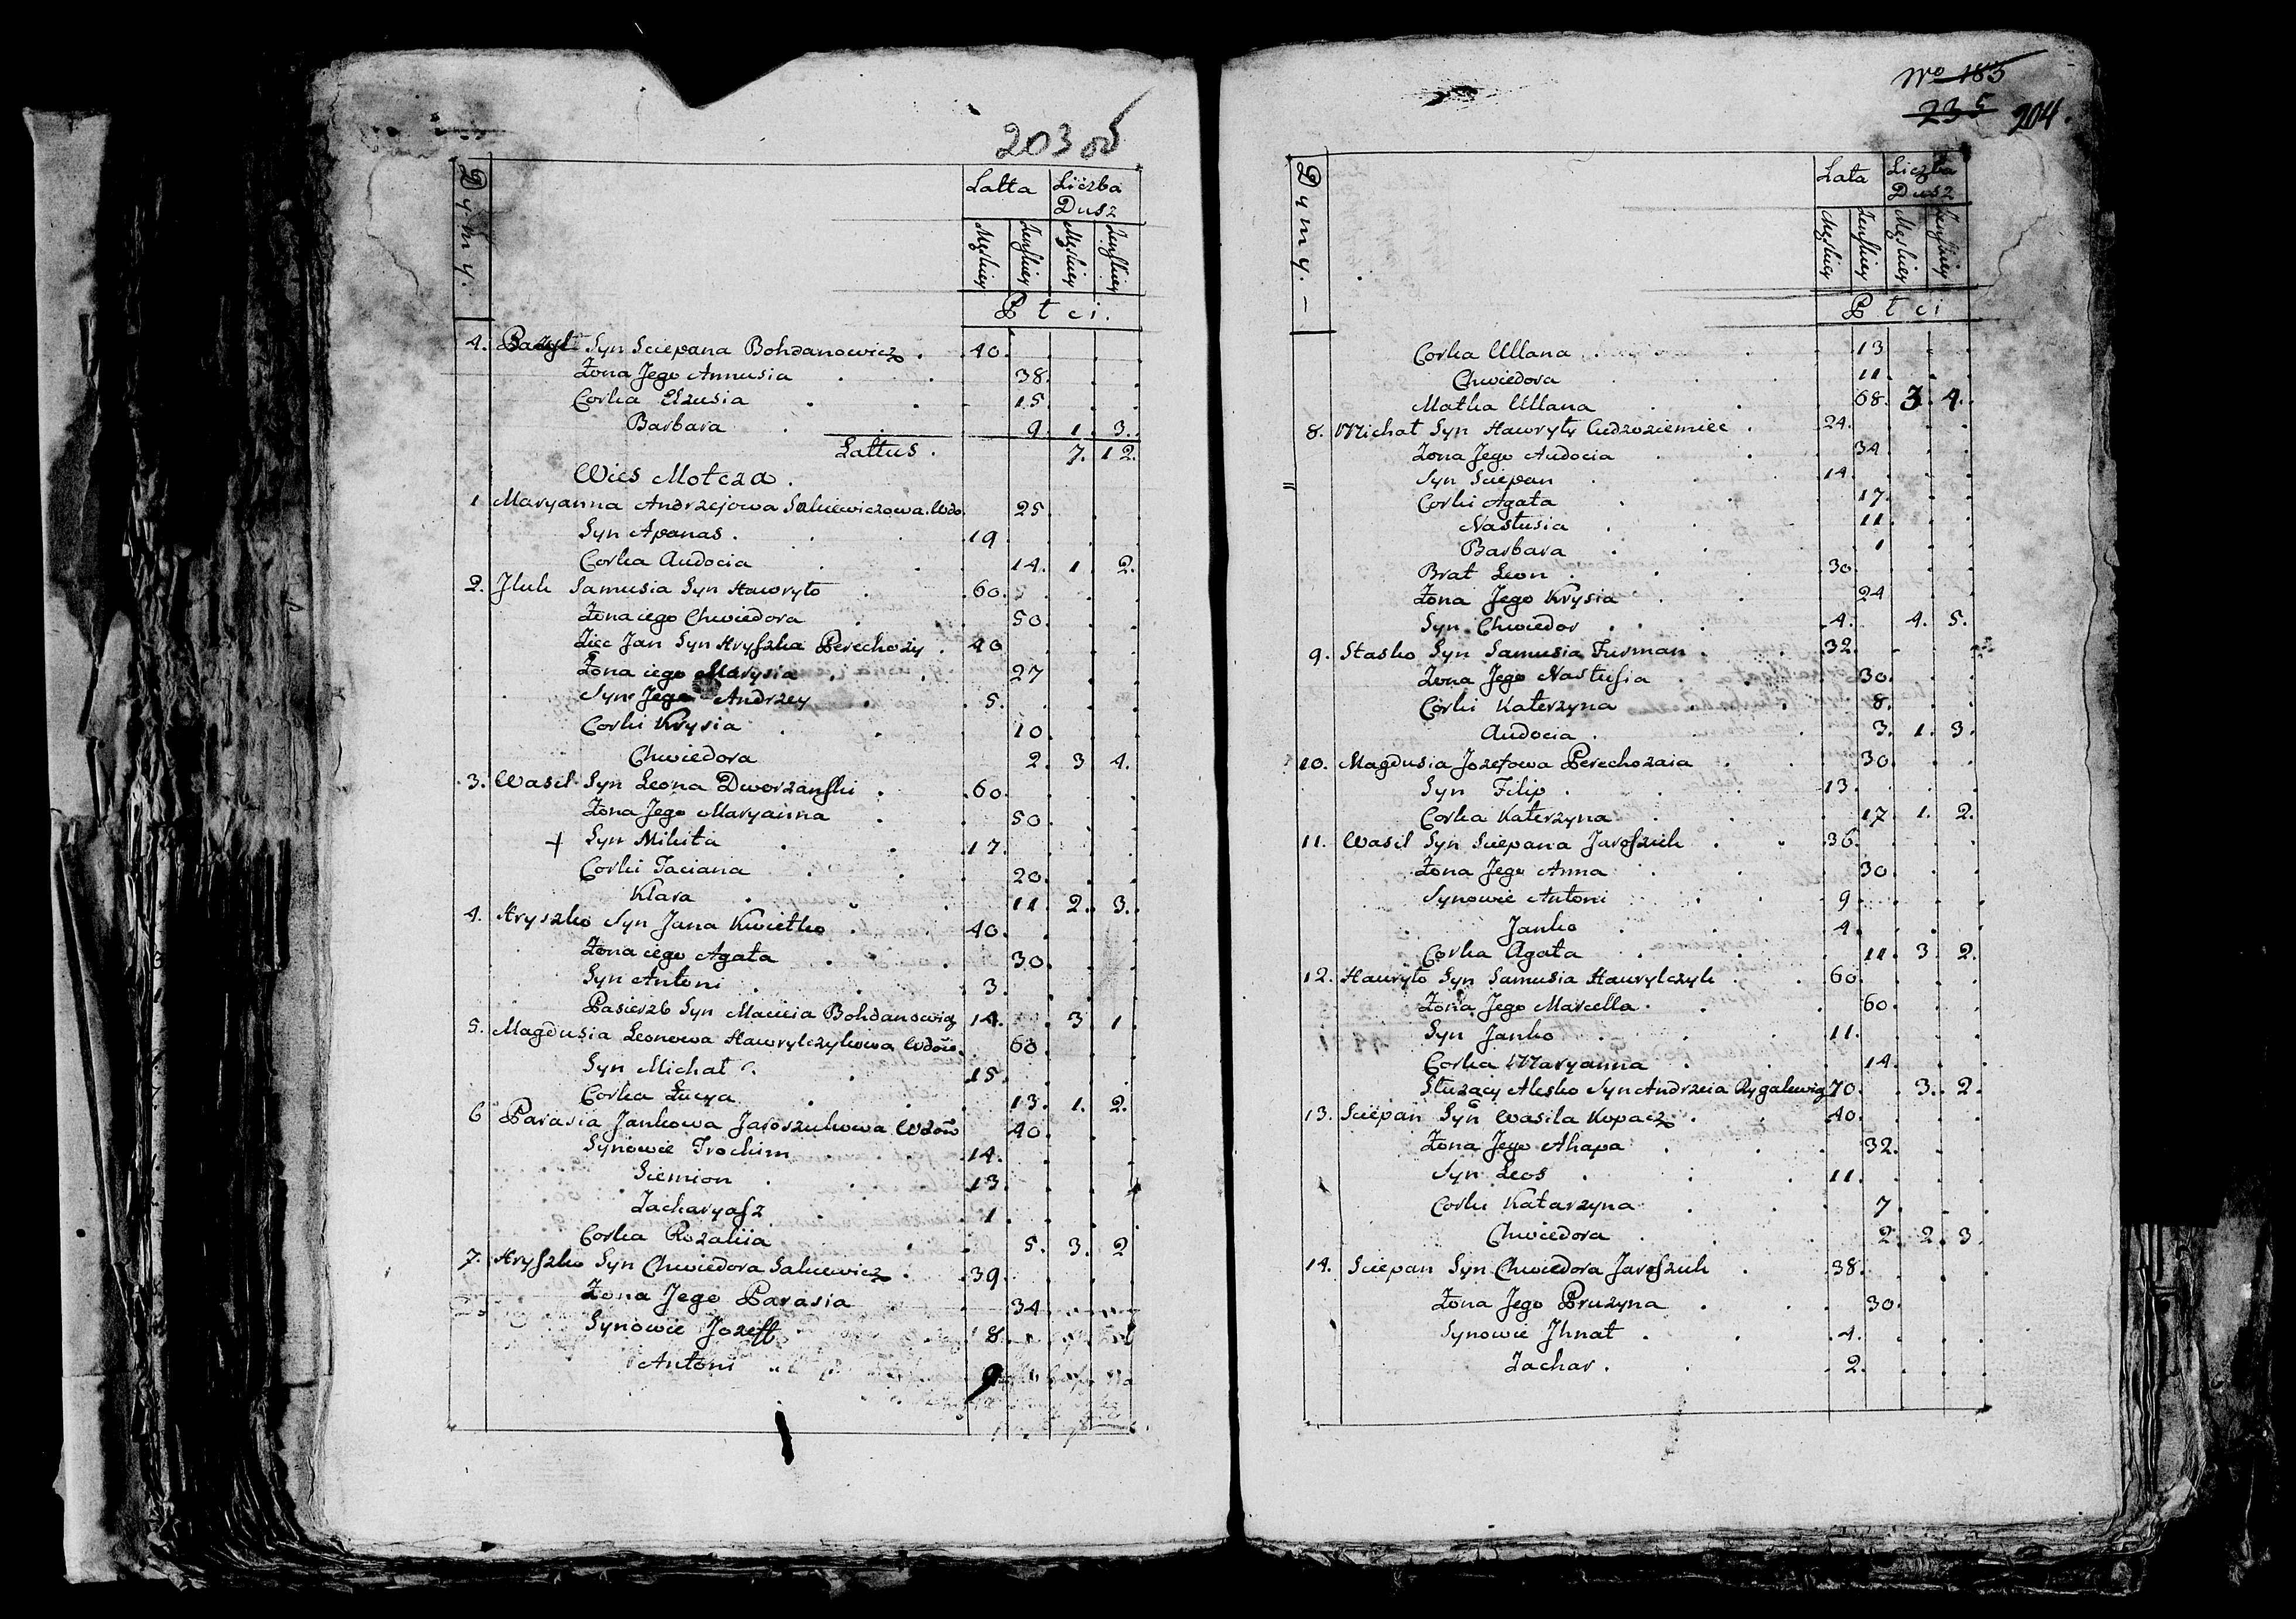 203 об
Dymy.
Latta Liczba Dusz
Męskiey Żeńskiey Męskiey Żeńskiey
Płci.
4. Bazyl Syn Sciepana Bohdanowicz . 40.
Żona Jego Annusia 38.
Corka Elzusia 15.
Barbara 9. 1. 3.
Lattus . 7. 12.
Wies Motcza .
1 Maryanna Andrzejowa Sakiewiczowa. Wdo. 25
Syn Apanas . 19
Corka Audocia 14. 1. 2.
2. Jluk Samusia Syn Hawryło 60.
Żona iego Chwiedora 50.
Zięc Jan Syn Hryszka Perechoży . 40
Żona iego Marysia 27
Syn Jego Andrzey 5.
Corki Krysia 10.
Chwiedora 2. 3 4.
3. Wasil Syn Leona Dworzanski . 60.
Żona Jego Maryanna 50.
+ Syn Mikita 17.
Corki Taciana 20.
Klara 11. 2. 3.
4. Hryszko Syn Jana Kwietko 40.
Żona iego Agata 30.
Syn Antoni 3.
Pasierzb Syn Macieia Bohdanowicz 14. 3. 1.
5. Magdusia Leonowa Hawrylczykowa Wdow. 60.
Syn Michał 15.
Corka Łucya 13. 1. 2.
6 Parasia Jankowa Jaroszukowa Wdow 40.
Synowie Trochim 14.
Siemion 13.
Zacharyasz 1.
Corka Rozalija 5. 3. 2
7. Hryszko Syn Chwiedora Sakiewicz . 39.
Żona Jego Parasia 34
Synowie Jozeff 8.
Antoni 9
No 183
235 204.
Dymy. –
Lata Liczba Dusz
Męskiey Żeńskiey Męskiey Żeńskiey
Płci
Corka Ullana 13
Chwiedora 11.
Matka Ullana 68. 3. 4.
8. Michał Syn Hawryły Cudzoziemiec . 24.
Żona Jego Audocia 34
Syn Sciepan 14.
Corki Agata 17.
Nastusia 11.
Barbara 1
Brat Leon . 30.
Żona Jego Krysia 24
Syn Chwiedor 4. 4. 5.
9. Stasko Syn Samusia Furman . 32.
Żona Jego Nastusia 30.
Corki Katerzyna 8.
Audocia . 3. 1. 3.
10. Magdusia Jozefowa Perechozaia 30.
Syn Filip . 13.
Corka Katerzyna 17. 1. 2.
11. Wasil Syn Sciepana Jaroszuk . 36.
Żona Jego Anna 30.
Synowie Antoni 9.
Janko 4.
Corka Agata 11. 3. 2.
12. Hawryło Syn Samusia Hawrylczyk 60.
Żona Jego Marcella . 60.
Syn Janko 11.
Corka Maryanna 14.
Słuzący Alesko Syn Andrzeia Rygalewicz 70. 3. 2.
13. Sciepan Syn Wasila Kopacz . 40.
Żona Jego Ahapa 32.
Syn Leos 11.
Corki Katarzyna 7
Chwiedora 2. 2. 3.
14. Sciepan Syn Chwiedora Jaroszuk . 38.
Żona Jego Pruzyna 30.
Synowie Jhnat . 4.
Zachar . 2.